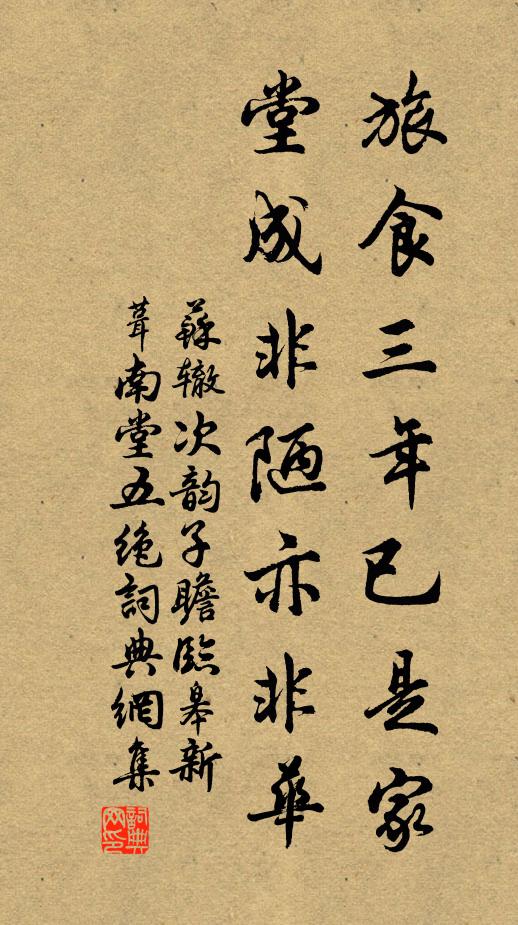 旅食三年已是家
堂成非陋亦非華
蘇辙次韵子瞻臨皋新
葺南堂五绝詞典網集
詞典
网印